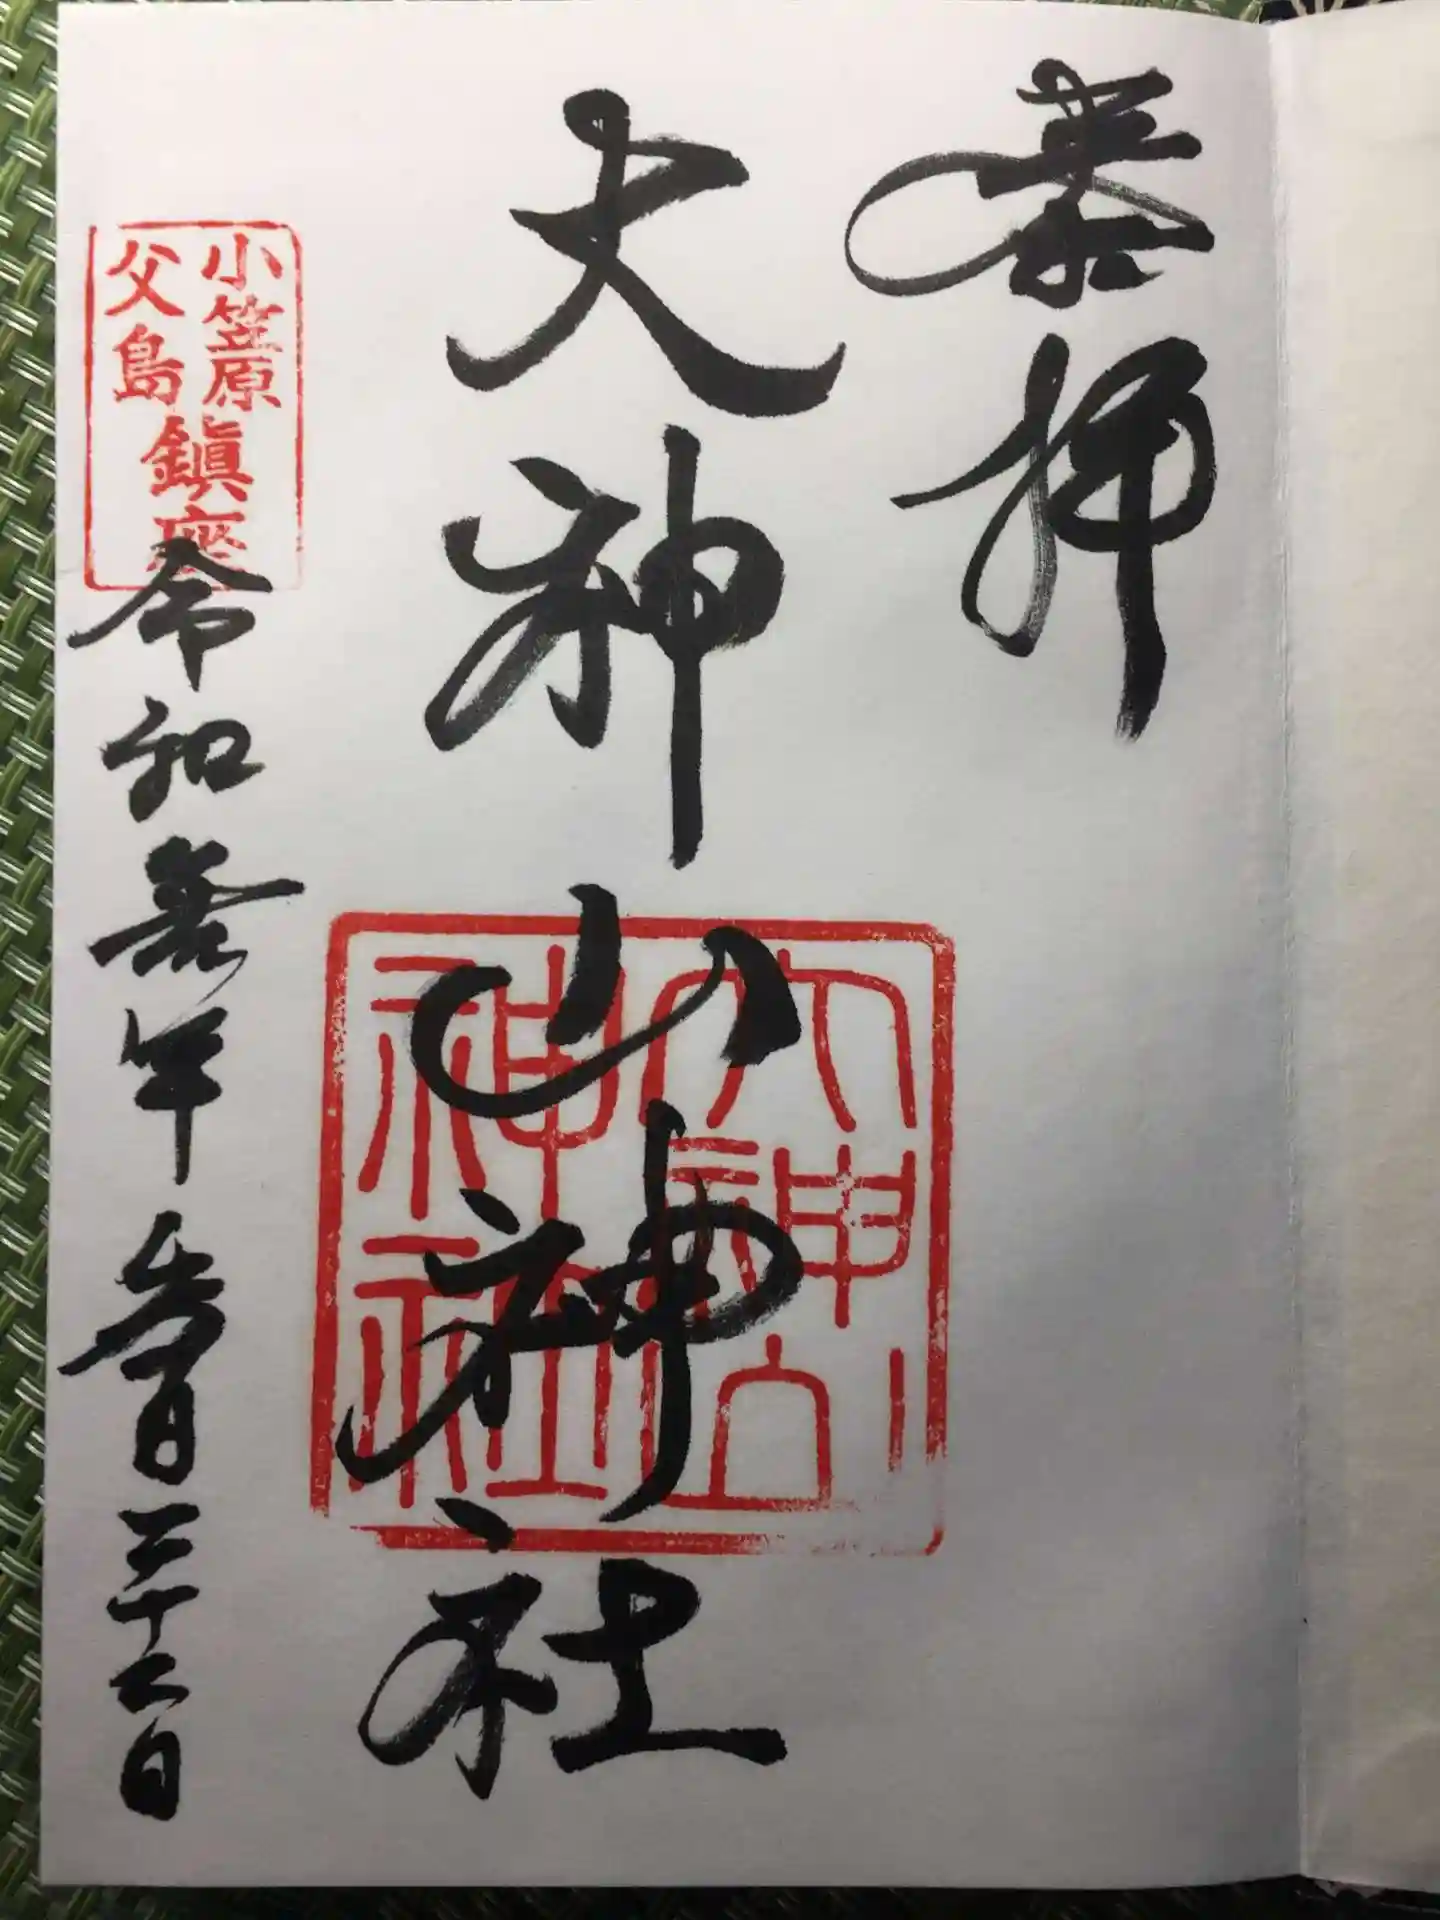 恭拝
大神山神社
大神山神社
小笠原
父島
鎮座
令和年参月二十二日